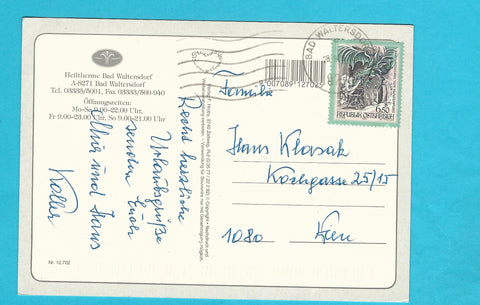 Heiltherme Bad Waltersdorf
A-8271 Bad Waltersdorf
Tel. 03333/5001, Fax 03333/500-940
Öffnungszeiten:
Mo-Sa 9.00-22.00 Uhr,
Fr 9.00-23.00 Uhr, So 9.00-21.00 Uhr
Recht herzliche
Urlaubsgrüße
senden Euch
und Hans
Koller
Nr. 12.702
BAD WALTERSDORF
9 007089 127023
6.50
REPUBLIK ÖSTERREICH
Familie
Hans Klasak
Kochgasse 25/15
1080 Wien